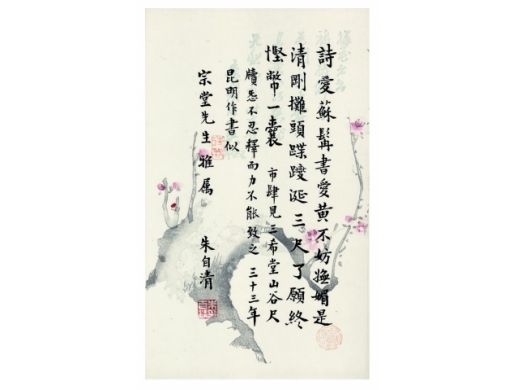 詩愛蘇髯書愛黃不妨嫵媚是
清剛攤頭蹀躞涎三尺了願終
慳幣一囊 市肆見三希堂山谷尺
牘愛不忍釋而力不能致之 三十三年
昆明作書似
宗堂先生雅屬
朱自清